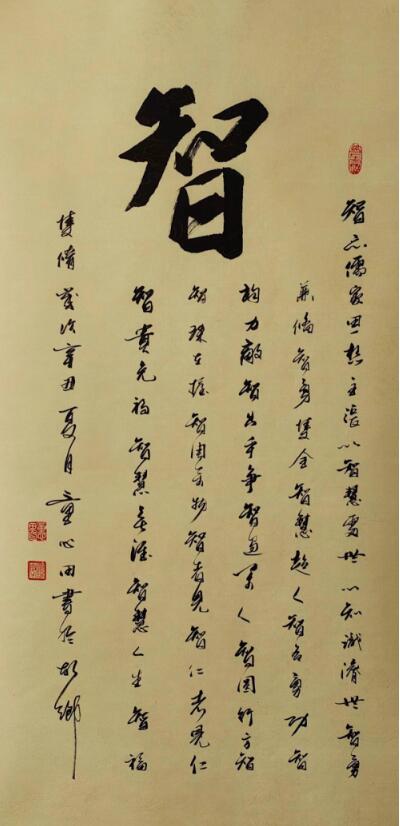 智
智亦儒家思想主張以智慧處世以知識濟世智勇
兼備智勇雙全智慧超人智名勇功智
均力敵智爭智過萬人智圓行方智
智珠在握智周萬物智者見智仁者見仁
智貴免禍智慧無涯智慧人生智福
雙脩歲次辛丑夏月童心田書於故鄉